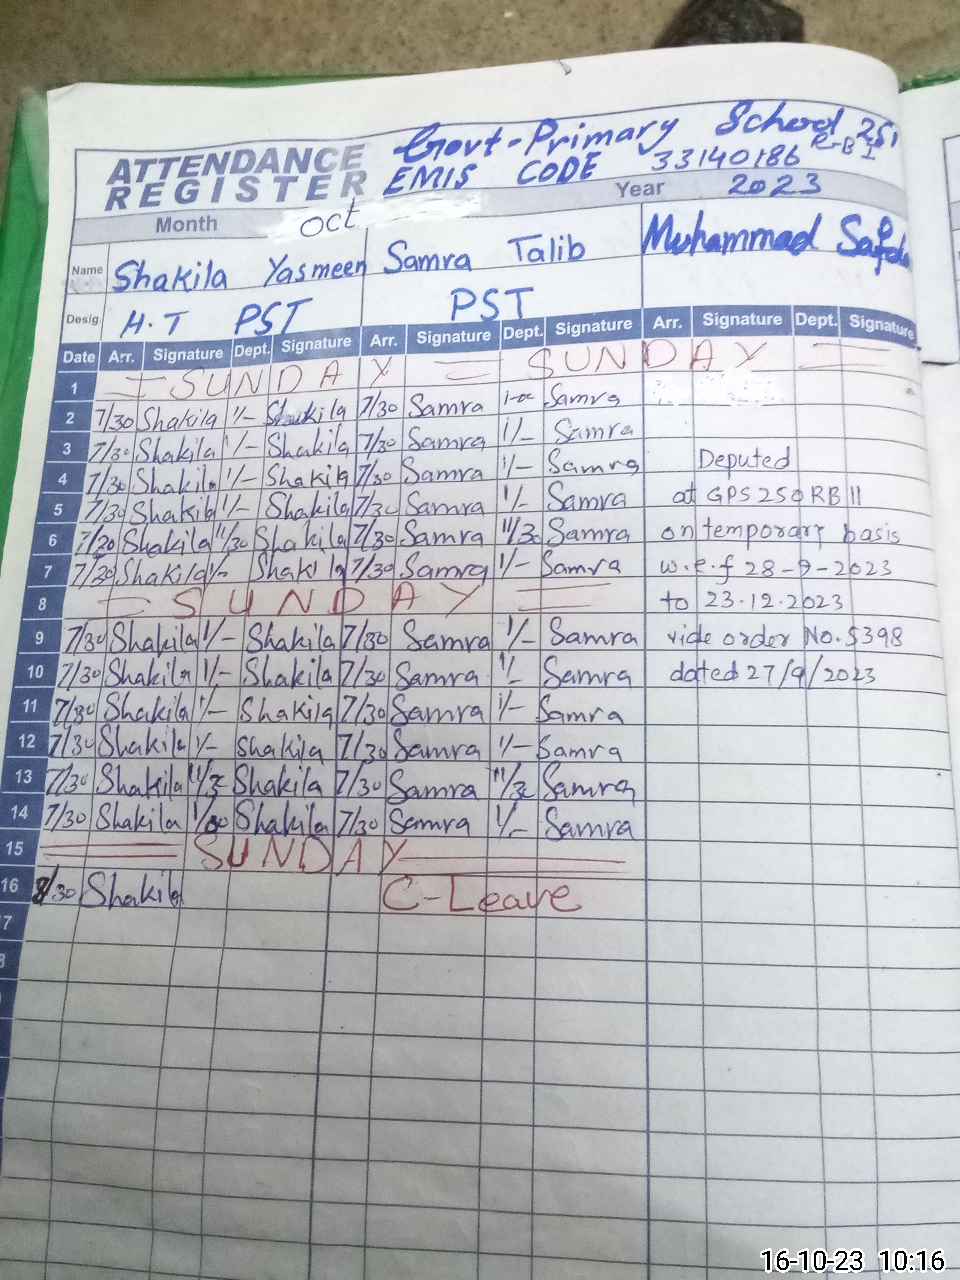 Govt-Primary School 251
ATTENDANCE REGISTER
EMIS CODE 33140186 R-B I
Month Oct Year 2023
Name Shakila Yasmeen Samra Talib Muhammad
Desig. H.T PST PST
Date Arr. Signature Dept. Signature Arr. Signature Dept. Signature Arr. Signature Dept. Signature
1 = SUNDAY = SUNDAY =
2 7/30 Shakila 1/- Shakila 7/30 Samra Samra
3 7/30 Shakila 1/- Shakila 7/30 Samra 1/- Samra
4 7/30 Shakila 1/- Shakila 7/30 Samra 1/- Samra Deputed
5 7/30 Shakila 1/- Shakila 7/30 Samra 1/- Samra at GPS 250 RB II
6 7/30 Shakila 11/30 Shakila 7/30 Samra 11/30 Samra on temporary basis
7 7/30 Shakila 1/- Shakila 7/30 Samra 1/- Samra w.e.f 28-9-2023
8 = SUNDAY = to 23.12.2023
9 7/30 Shakila 1/- Shakila 7/30 Samra 1/- Samra vide order No. 5398
10 7/30 Shakila 1/- Shakila 7/30 Samra 1/- Samra dated 27/9/2023
11 7/30 Shakila 1/- Shakila 7/30 Samra 1/- Samra
12 7/30 Shakila 1/- Shakila 7/30 Samra 1/- Samra
13 7/30 Shakila 11/3 Shakila 7/30 Samra 11/30 Samra
14 7/30 Shakila 1/00 Shakila 7/30 Samra 1/- Samra
15 = SUNDAY =
16 8/30 Shakila C-Leave
16-10-23 10:16